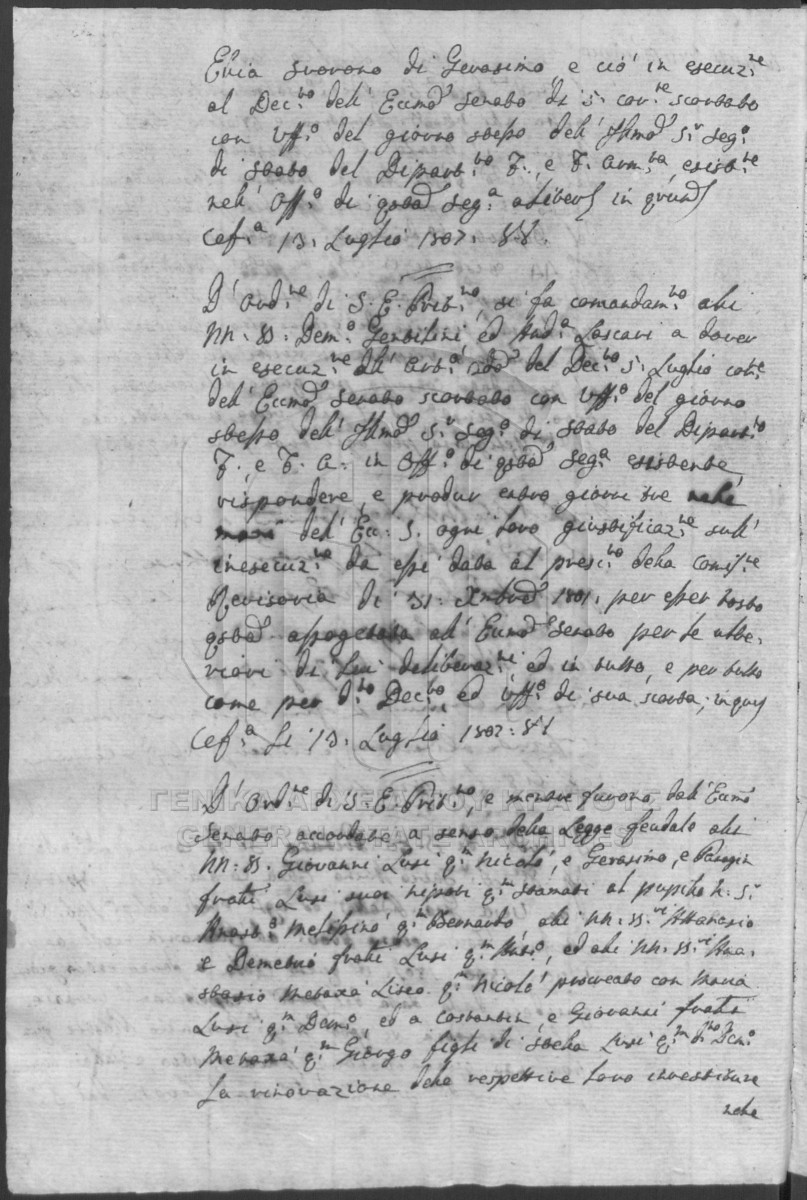 Elvia Suorono di Gerasimo, e ciò in esecuz.ne
al Dec.to dell' Eccmo Senato di 5. cor.te scortato
con Uff.o del giorno stesso dell' Illmo S.r Seg.o
di Stato del Dipart.to T., e T. Arm.ta, esist.te
nell' Off.o di qsta Seg.a
Cef.a 13. Luglio 1807. S.V.
D' Ord.ne di S. E. Prit.no, si fa comandam.to alli
NN. SS. Dem.o Gentilini, ed And.a Lascari a dover
in esecuz.ne dell' Art.o del Dec.to 5. Luglio cor.te
dell' Eccmo Senato scortato con Uff.o del giorno
stesso dell' Illmo S.r Seg.o di Stato del Dipart.to
T., e T. A. in Off.o di qsta Seg.a esistente,
rispondere, e produr entro giorni tre nelle
mani dell' Ec. S. ogni loro giustificaz.ne sull'
inesecuz.ne da essi data al presc.to della Comiss.ne
Revisoria di 31. Xmbre 1801. per esser tosto
qsta assogettata all' Eccmo Senato per le ulte-
riori di Lui deliberaz.ni, ed in tutto, e per tutto
come per d.to Dec.to, ed Uff.o di sua scorta; in quor
Cef.a li 13. Luglio 1807. S.V.
D' Ord.ne di S. E. Prit.no, e mentre furono dall' Eccmo
Senato accordate a senso della Legge feudale alli
NN. SS. Giovanni Lusi q.m Nicolò, e Gerasimo, e Panagin
fratelli Lusi suoi nipoti q.m Stamati al pupillo N. S.r
Anast.o Melissinò q.m Bernardo, alli NN. SS.ri Attanasio
e Demetrio fratelli Lusi q.m Anst.o, ed alli NN. SS.ri Ana-
stasio Metaxà Liseo q.m Nicolò procreato con Maria
Lusi q.m Dem.o, ed a Costantin, e Giovanni fratelli
Metaxà q.m Giorgo figli di Stella Lusi q.m d.to Dem.o
la rinovazione delle respettive loro investiture
nelle
ΓΕΝΙΚΑ ΑΡΧΕΙΑ ΤΟΥ ΚΡΑΤΟΥΣ
GENERAL STATE ARCHIVES